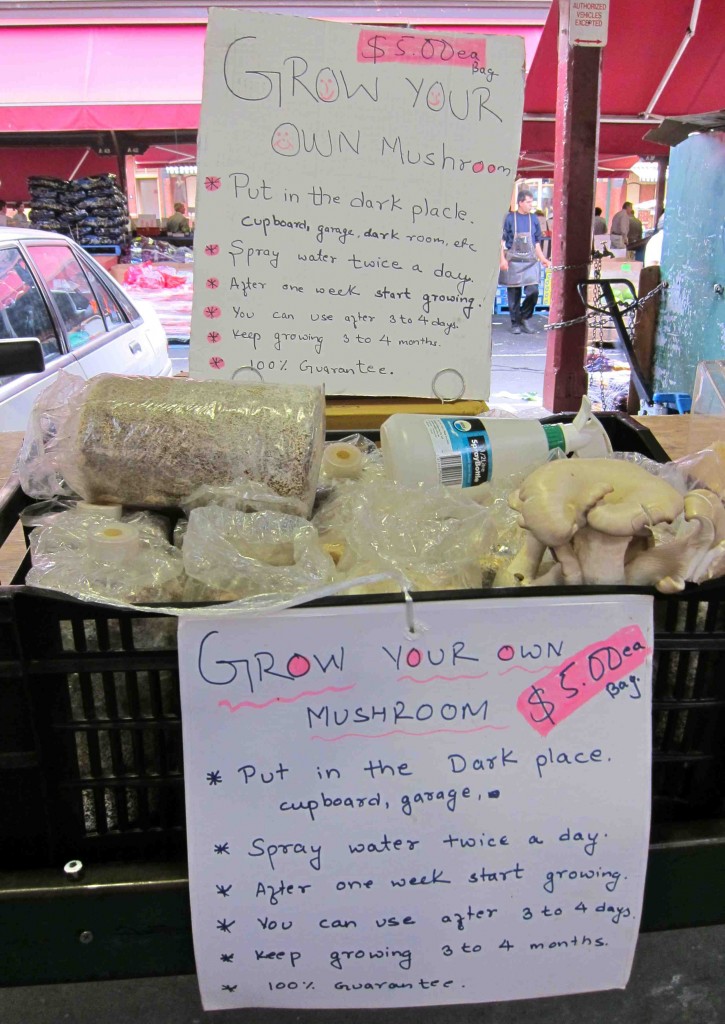 AUTHORIZED
VEHICLES
EXCEPTED
$5.00ea
Bag
GROW YOUR
OWN Mushroom
* Put in the dark placle.
cupboard, garage, dark room, etc
* Spray water twice a day.
* After one week start growing.
* You can use after 3 to 4 days.
* Keep growing 3 to 4 months.
* 100% Guarantee.
1/2 Litre
Spray Bottle
GROW YOUR OWN
MUSHROOM
$5.00ea
Bag.
* Put in the Dark place.
cupboard, garage,
* Spray water twice a day.
* After one week start growing.
* You can use after 3 to 4 days.
* Keep growing 3 to 4 months.
* 100% Guarantee.